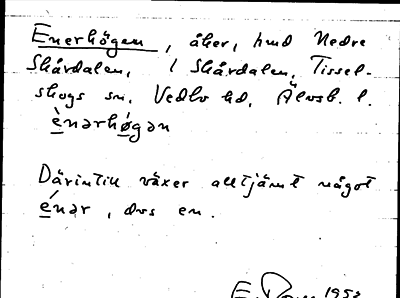 Enerhögen, åker, hmd Nedre
Skårdalen, i Skårdalen, Tissel-
skogs sn, Vedbo hd, Älvsb. l.
ènərhø̀gən
Därintill växer alltjämt något
énər, dvs en.
1952